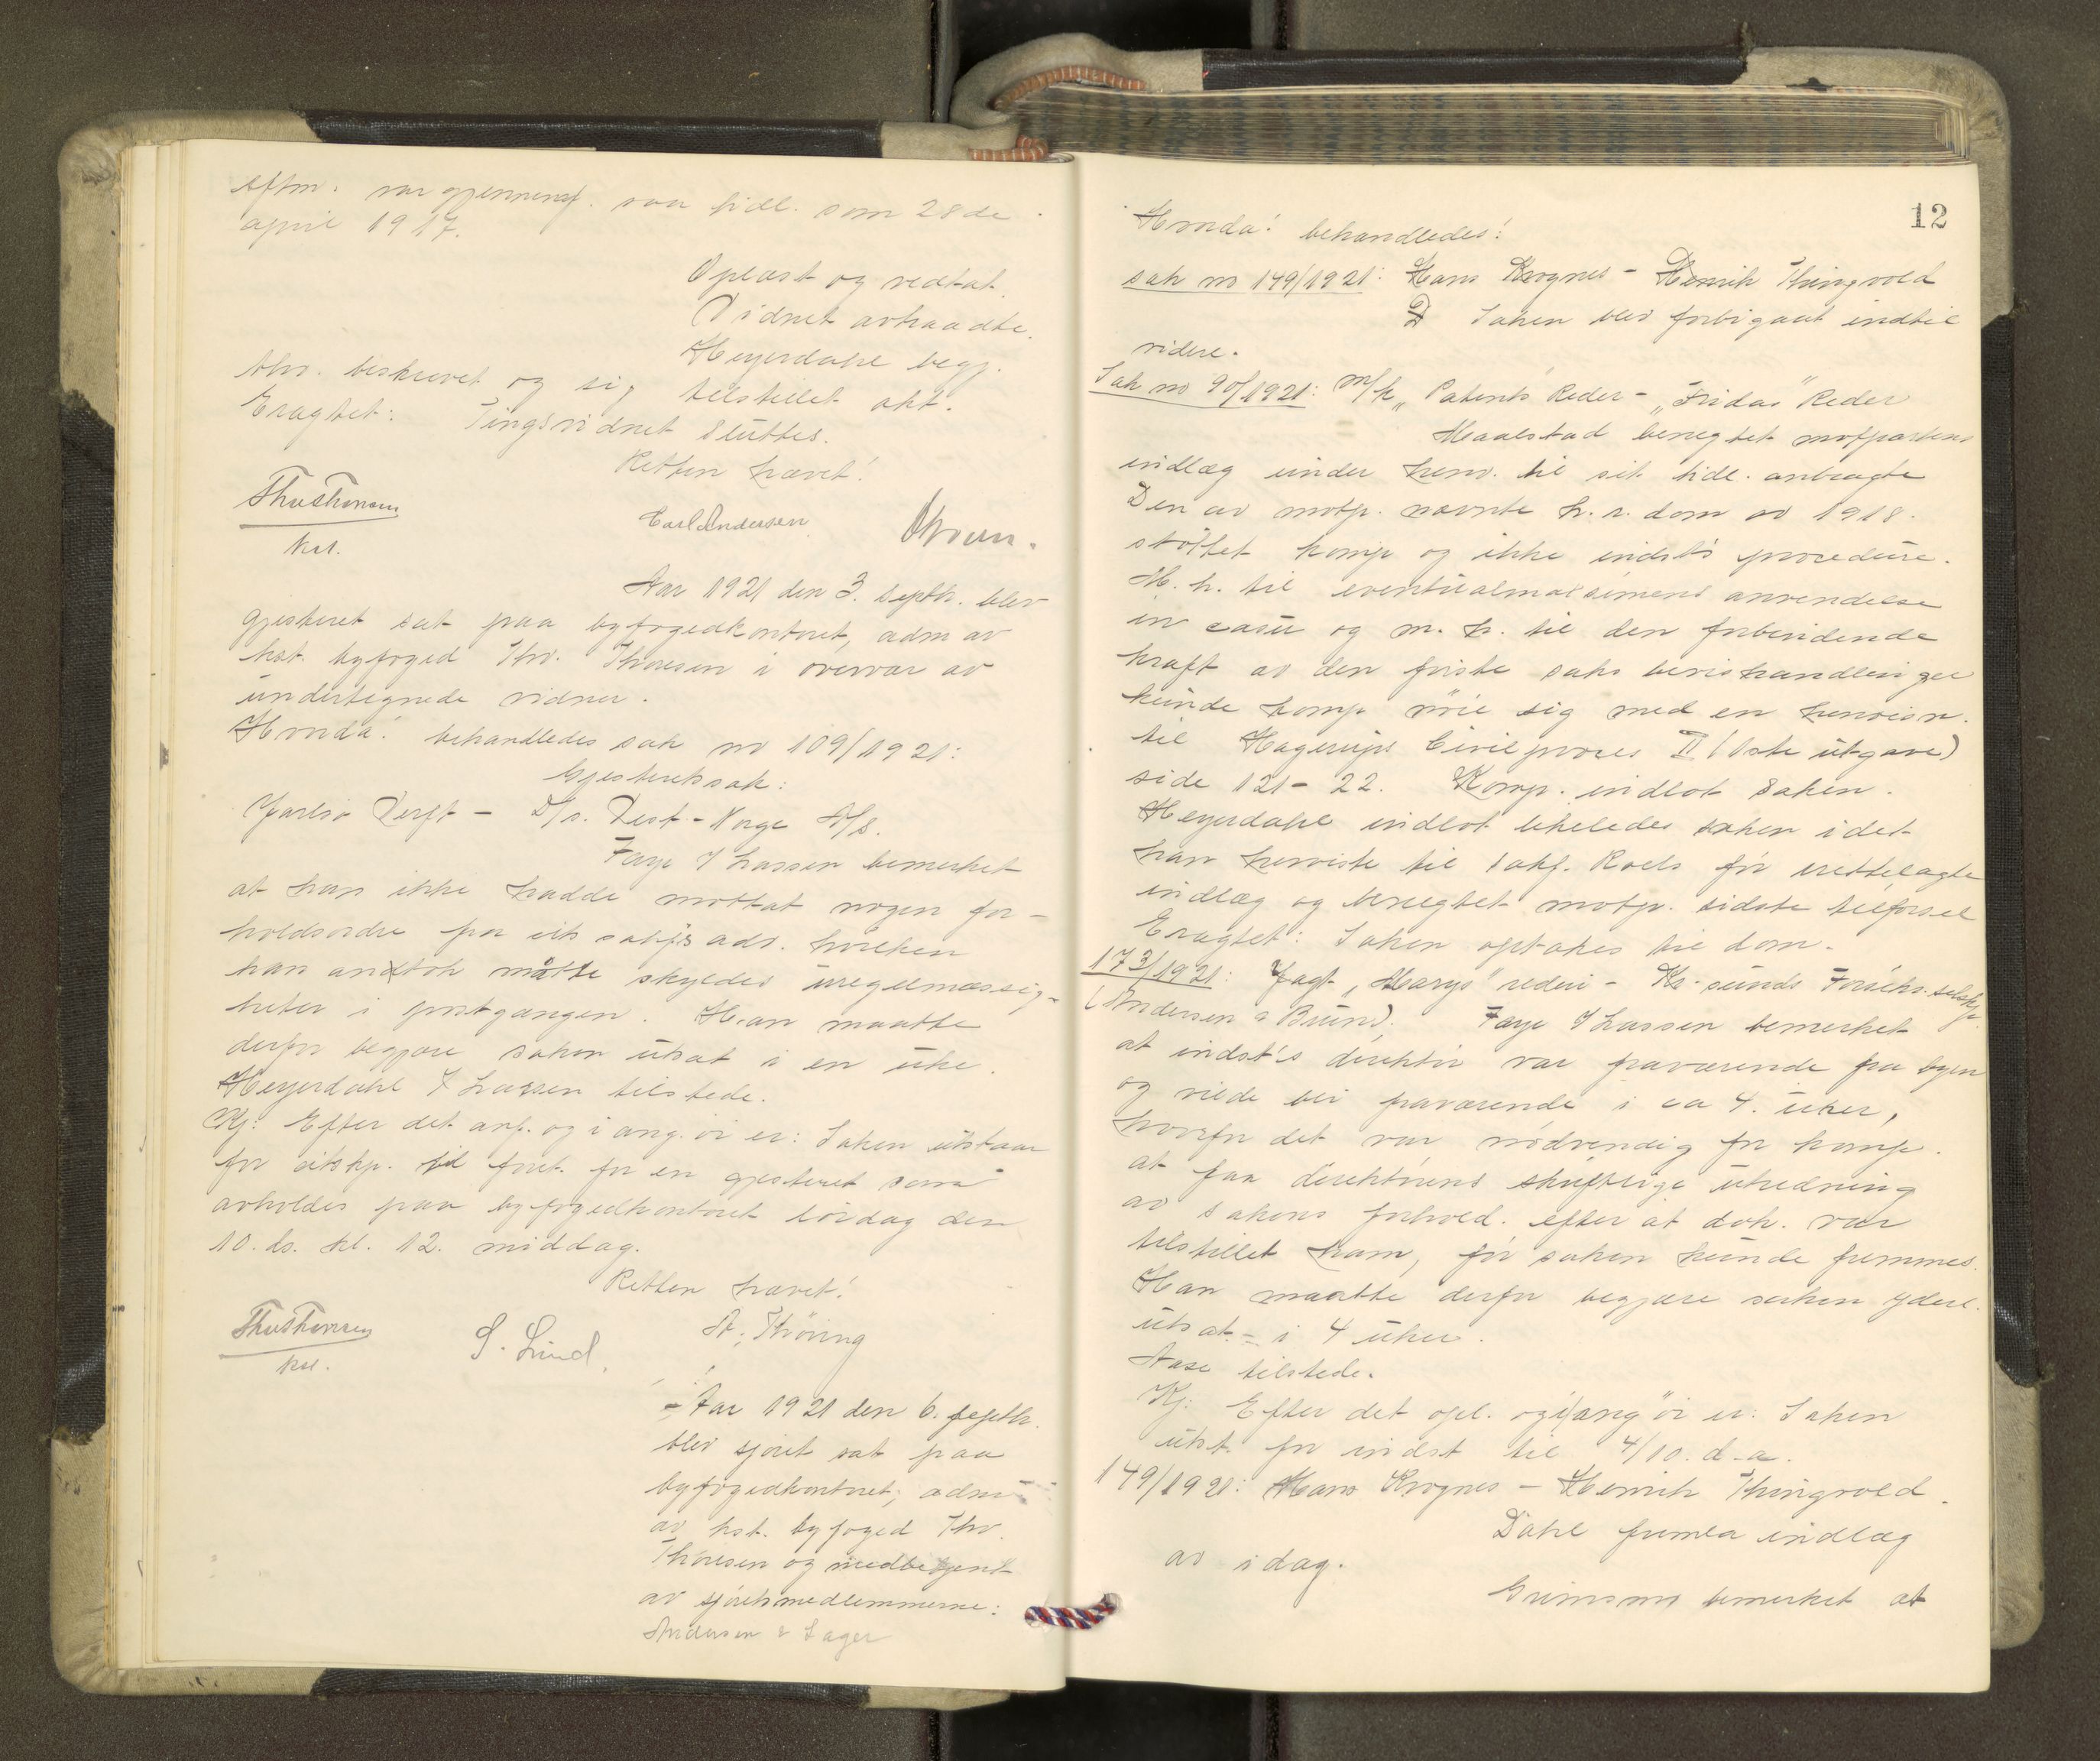 eftm. var gjennemg. saa tidl. som 28de
april 1917.
Oplæst og vedtat.
Vidnet avtraadte.
Heyerdahl begj.
tilstillet akt.
Eragtet: Tingsvidnet sluttes.
Retten hævet!
Thv Thoresen
kst.
Carl Andersen
Aar 1921 den 3. septbr. blev
gjesteret sat paa byfogedkontoret, adm av
kst. byfoged Thv. Thoresen i overvær av
undertegnede vidner.
Hvorda! behandledes sak no 109/1921:
Gjesteretssak:
Jarlsø Verft - D/s. Vest-Norge A/S.
Faye f Lassen bemerket
at han ikke hadde mottat nogen for-
holdsordre fra sits adv. hvilken
han antok måtte skyldes uregelmæssig-
heter i postgangen. Han maatte
derfor begjære saken utsat i en uke.
Heyerdahl f Lassen tilstede.
Kj: Efter det anf. og i ang. øi er: Saken utstaar
for citskp. til foret. for en gjesteret som
avholdes paa byfogedkontoret lørdag den
10. ds. kl. 12. middag.
Retten hævet!
Thv Thoresen
kst.
S. Lind.
A. Thöring
Aar 1921 den 6. septbr.
blev sjøret sat paa
byfogedkontoret, adm
av kst. byfoged Thv.
Thoresen og medbetjent
av sjøretsmedlemmerne:
Andersen & Sager
12
Hvorda! behandledes!
sak no 149/1921: Hans Krognes - Henrik Thingvold
Saken blev forbigaat indtil
videre.
Sak no 90/1921: m/k „Patents" Reder - „Fridas" Reder
Maalstad benegtet motpartens
indlæg under henv. til sit tidl. anbragte
Den av motp. nævnte h. r. dom av 1918.
støttet komp og ikke indst's procedure.
M. h. til eventualmaximens anvendelse
in casu og m. h. til den forbindende
kraft av den første saks bevishandlinger
kunde komp nøie sig med en henvisn.
til Hagerups Civilproces II (1ste utgave)
side 121-22. Komp. indlot saken.
Heyerdahl indlot likeledes saken idet
han henviste til sakf. Roels før irettelagte
indlæg og benegtet motp. sidste tilførsel
Eragtet: Saken optakes til dom.
173/1921: Jagt „Marys" rederi - Kr.sunds Forsikr.selskp.
(Andersen & Bruun). Faye f Lassen bemerket
at indst's direktør var fraværende fra byen
og vilde bli fraværende i ca 4. uker,
hvorfor det var nødvendig for komp.
at faa direktørens skriftlige utredning
av sakens forhold. efter at dok. var
tilstillet ham, før saken kunde fremmes.
Han maatte derfor begjære saken yderl.
utsat - i 4 uker.
Aase tilstede.
Kj: Efter det opl. og i ang øi er: Saken
utst. for indst til 4/10. d.a.
149/1921: Hans Krognes - Henrik Thingvold.
Dahl fremla indlæg
av idag.
Grimsmo bemerket at